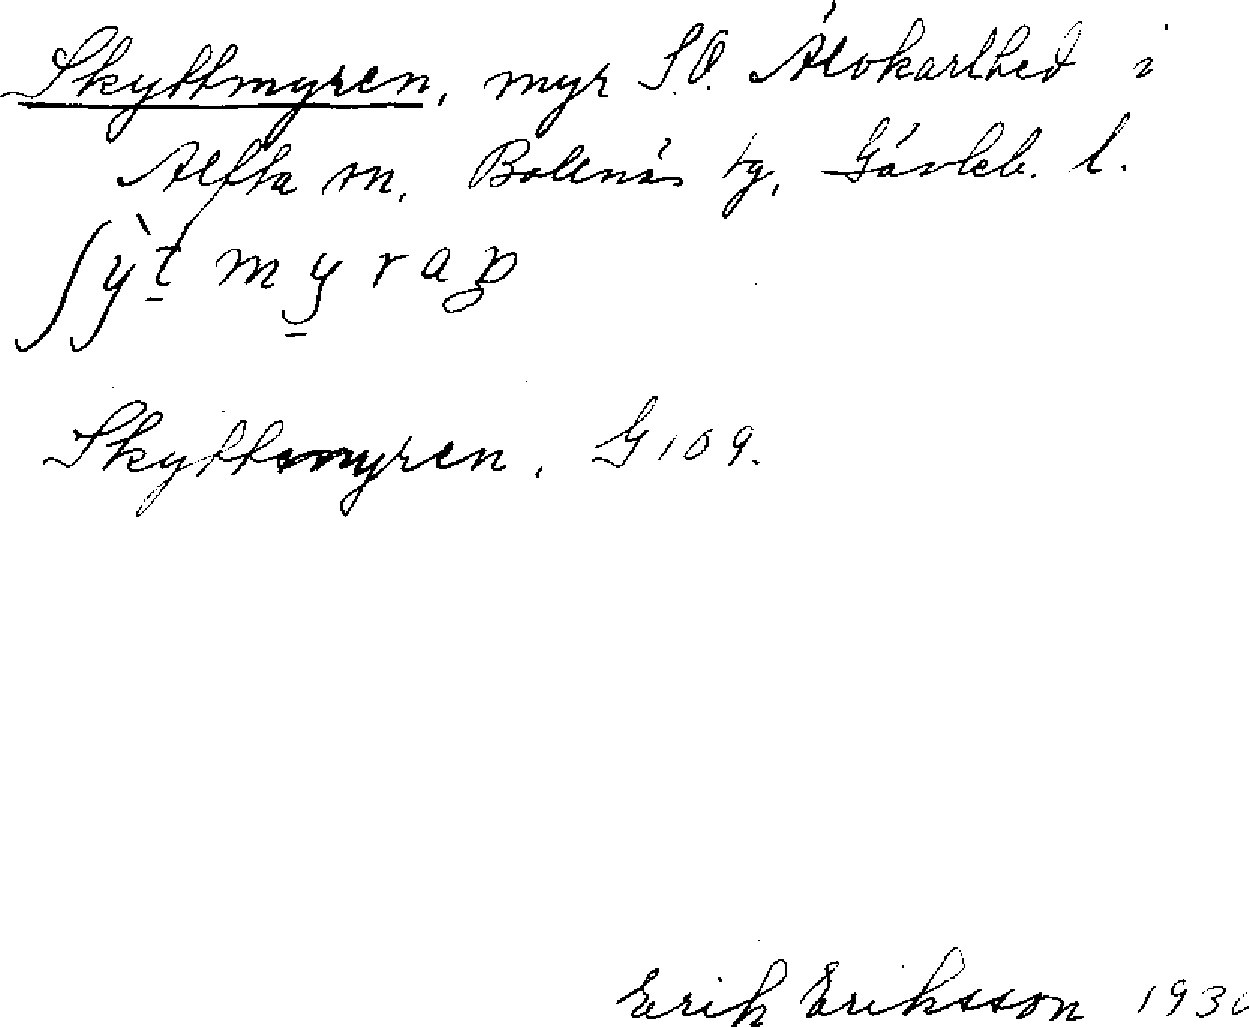 Skyttmyren, myr S.O. Älvkarlhed i
Alfta sn, Bollnäs tg, Gävleb. l.
Skyttmyren, G 109.
Erik Eriksson 1930